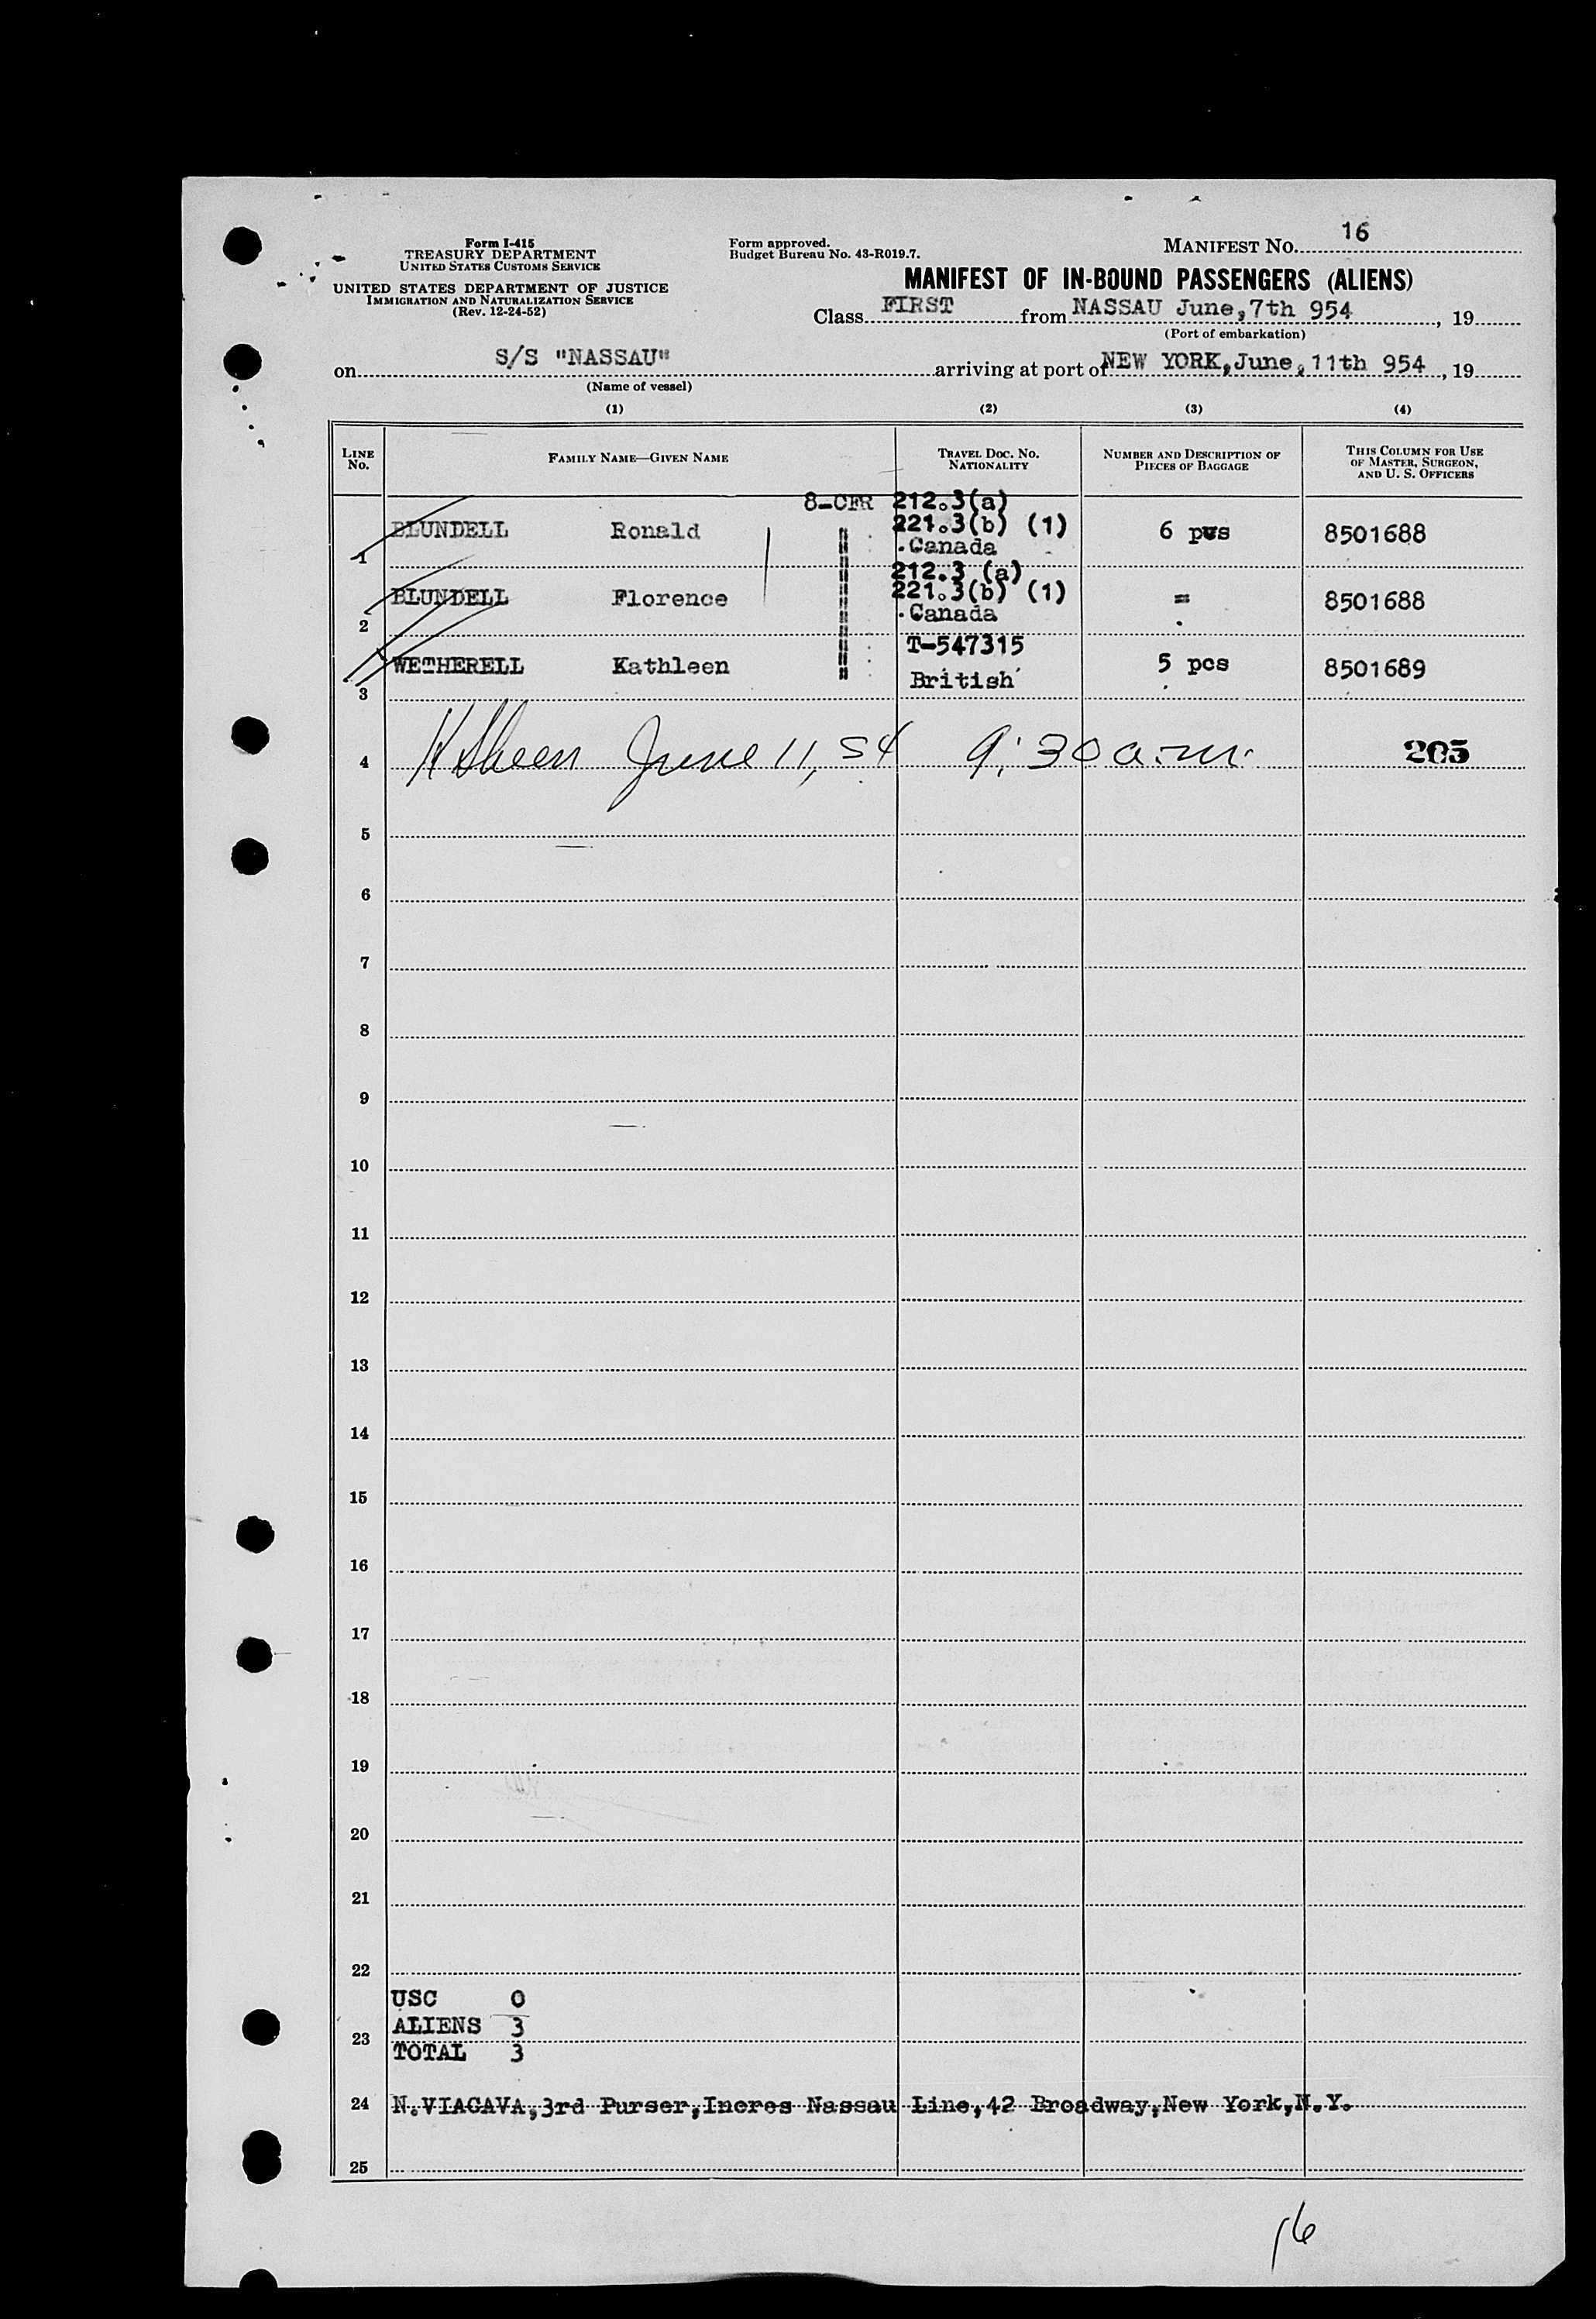 Form I-415
TREASURY DEPARTMENT
UNITED STATES CUSTOMS SERVICE
UNITED STATES DEPARTMENT OF JUSTICE
IMMIGRATION AND NATURALIZATION SERVICE
(Rev. 12-24-52)
Form approved.
Budget Bureau No. 43-R019.7.
MANIFEST NO. 16
MANIFEST OF IN-BOUND PASSENGERS (ALIENS)
Class FIRST from NASSAU June,7th 954, 19
(Port of embarkation)
on S/S "NASSAU" arriving at port of NEW YORK,June,11th 954, 19
(Name of vessel)
(1) (2) (3) (4)
LINE No. FAMILY NAME—GIVEN NAME TRAVEL DOC. NO. NATIONALITY NUMBER AND DESCRIPTION OF PIECES OF BAGGAGE THIS COLUMN FOR USE OF MASTER, SURGEON, AND U. S. OFFICERS
8-CFR 212.3(a)
1 BLUNDELL Ronald " 221.3(b) (1) 6 pcs 8501688
" Canada
" 212.3 (a)
2 BLUNDELL Florence " 221.3(b) (1) = 8501688
" Canada
" T-547315
3 WETHERELL Kathleen " 5 pcs 8501689
" British
4 June 11, 54 9:30 a.m. 205
5
6
7
8
9
10
11
12
13
14
15
16
17
18
19
20
21
22
USC 0
23 ALIENS 3
TOTAL 3
24 N.VIAGAVA,3rd Purser,Incres Nassau Line,42 Broadway,New York,N.Y.
25
16